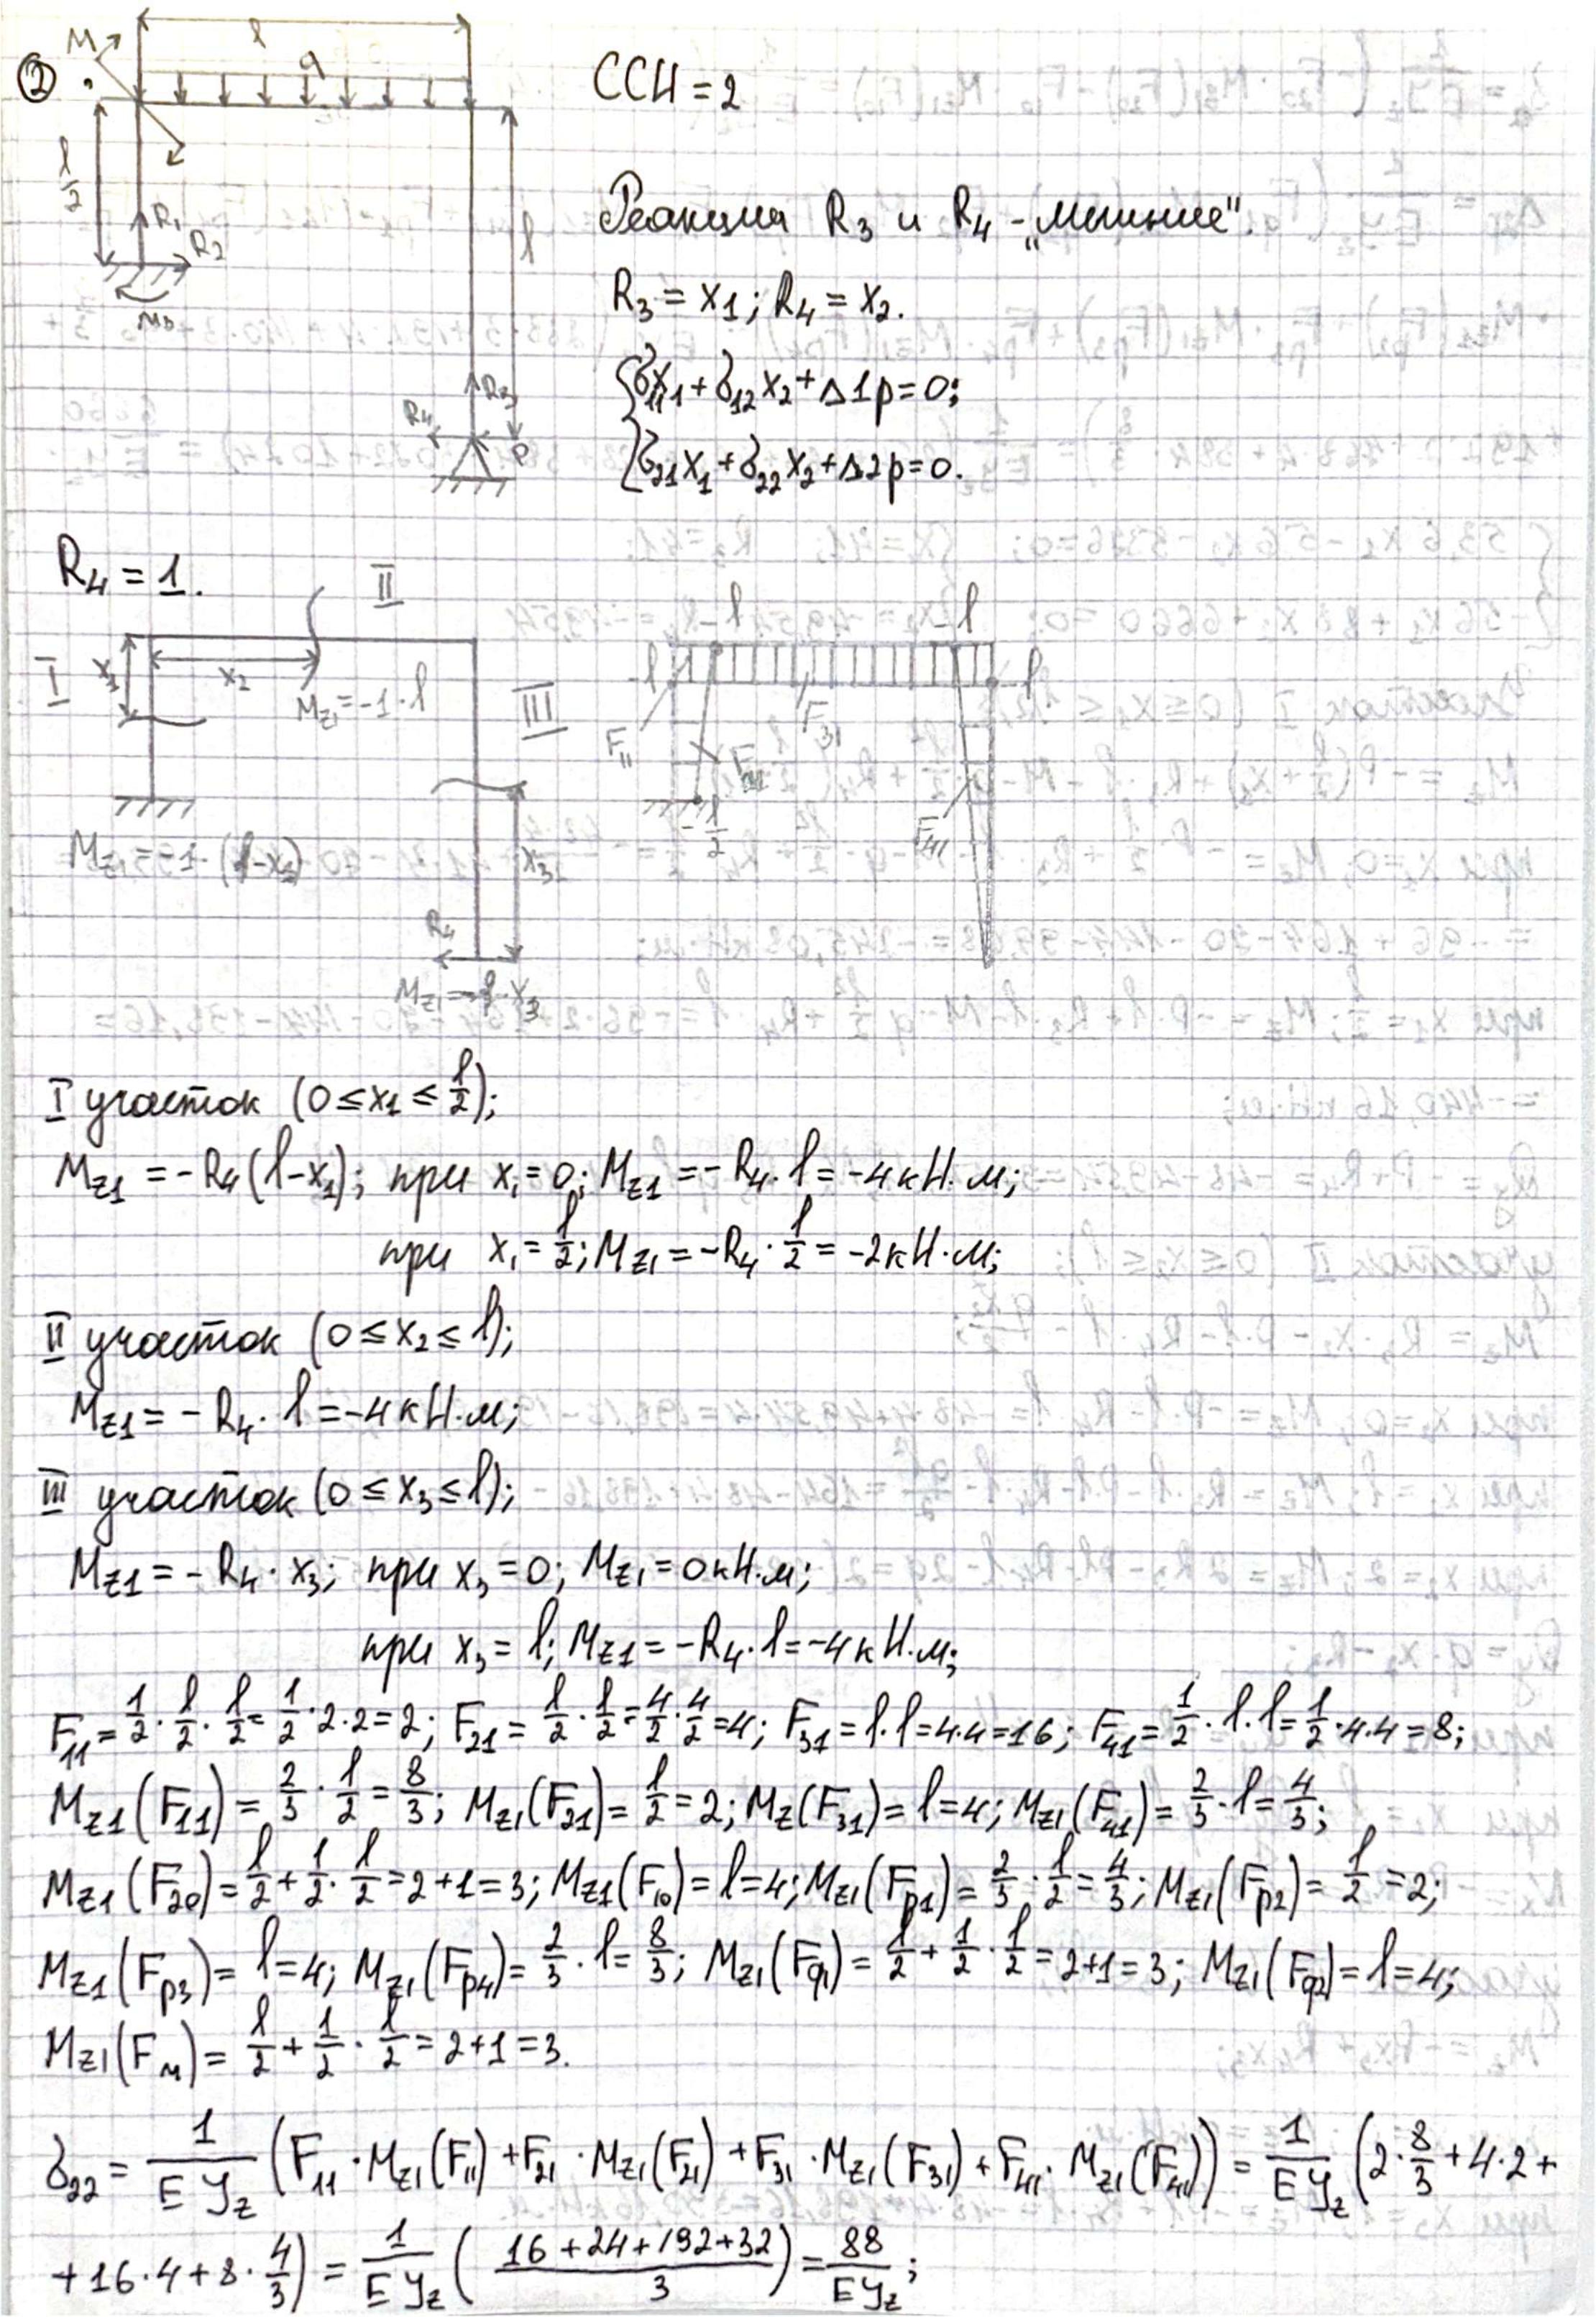 ②
M
l
q
ССН = 2
l/2
R₁
R₂
M₃
l
Реакция R₃ и R₄ - „лишние".
R₃ = x₁; R₄ = x₂.
δ₁₁x₁ + δ₁₂x₂ + Δ1p = 0;
δ₂₁x₁ + δ₂₂x₂ + Δ2p = 0.
R₃
R₄
P
R₄ = 1.
II
I
x₁
x₂
M_z₁ = -1·l
III
-l
-l
-l
F₁₁
F₂₁
F₃₁
-l/2
F₄₁
M_z₁ = -1·(l-x₁)
x₃
R₄
M_z₁ = -1·x₃
I участок (0 ≤ x₁ ≤ l/2);
M_z1 = -R₄(l-x₁); при x₁ = 0; M_z1 = -R₄·l = -4 кН·м;
при x₁ = l/2; M_z1 = -R₄·l/2 = -2 кН·м;
II участок (0 ≤ x₂ ≤ l);
M_z1 = -R₄·l = -4 кН·м;
III участок (0 ≤ x₃ ≤ l);
M_z1 = -R₄·x₃; при x₃ = 0; M_z1 = 0 кН·м;
при x₃ = l; M_z1 = -R₄·l = -4 кН·м;
F₁₁ = 1/2·l/2·l/2 = 1/2·2·2 = 2; F₂₁ = l/2·l/2 = 4/2·4/2 = 4; F₃₁ = l·l = 4·4 = 16; F₄₁ = 1/2·l·l = 1/2·4·4 = 8;
M_z1(F₁₁) = 2/3·l/2 = 8/3; M_z1(F₂₁) = l/2 = 2; M_z(F₃₁) = l = 4; M_z1(F₄₁) = 2/3·l = 4/3;
M_z1(F₂₀) = l/2 + 1/2·l/2 = 2+1 = 3; M_z1(F₁₀) = l = 4; M_z1(F_p1) = 2/3·l/2 = 4/3; M_z1(F_p2) = l/2 = 2;
M_z1(F_p3) = l = 4; M_z1(F_p4) = 2/3·l = 8/3; M_z1(F_q1) = l/2 + 1/2·l/2 = 2+1 = 3; M_z1(F_q2) = l = 4;
M_z1(F_м) = l/2 + 1/2·l/2 = 2+1 = 3.
δ₂₂ = 1/(E J_z) (F₁₁·M_z1(F₁₁) + F₂₁·M_z1(F₂₁) + F₃₁·M_z1(F₃₁) + F₄₁·M_z1(F₄₁)) = 1/(E J_z) (2·8/3 + 4·2 +
+ 16·4 + 8·4/3) = 1/(E J_z) ((16+24+192+32)/3) = 88/(E J_z);